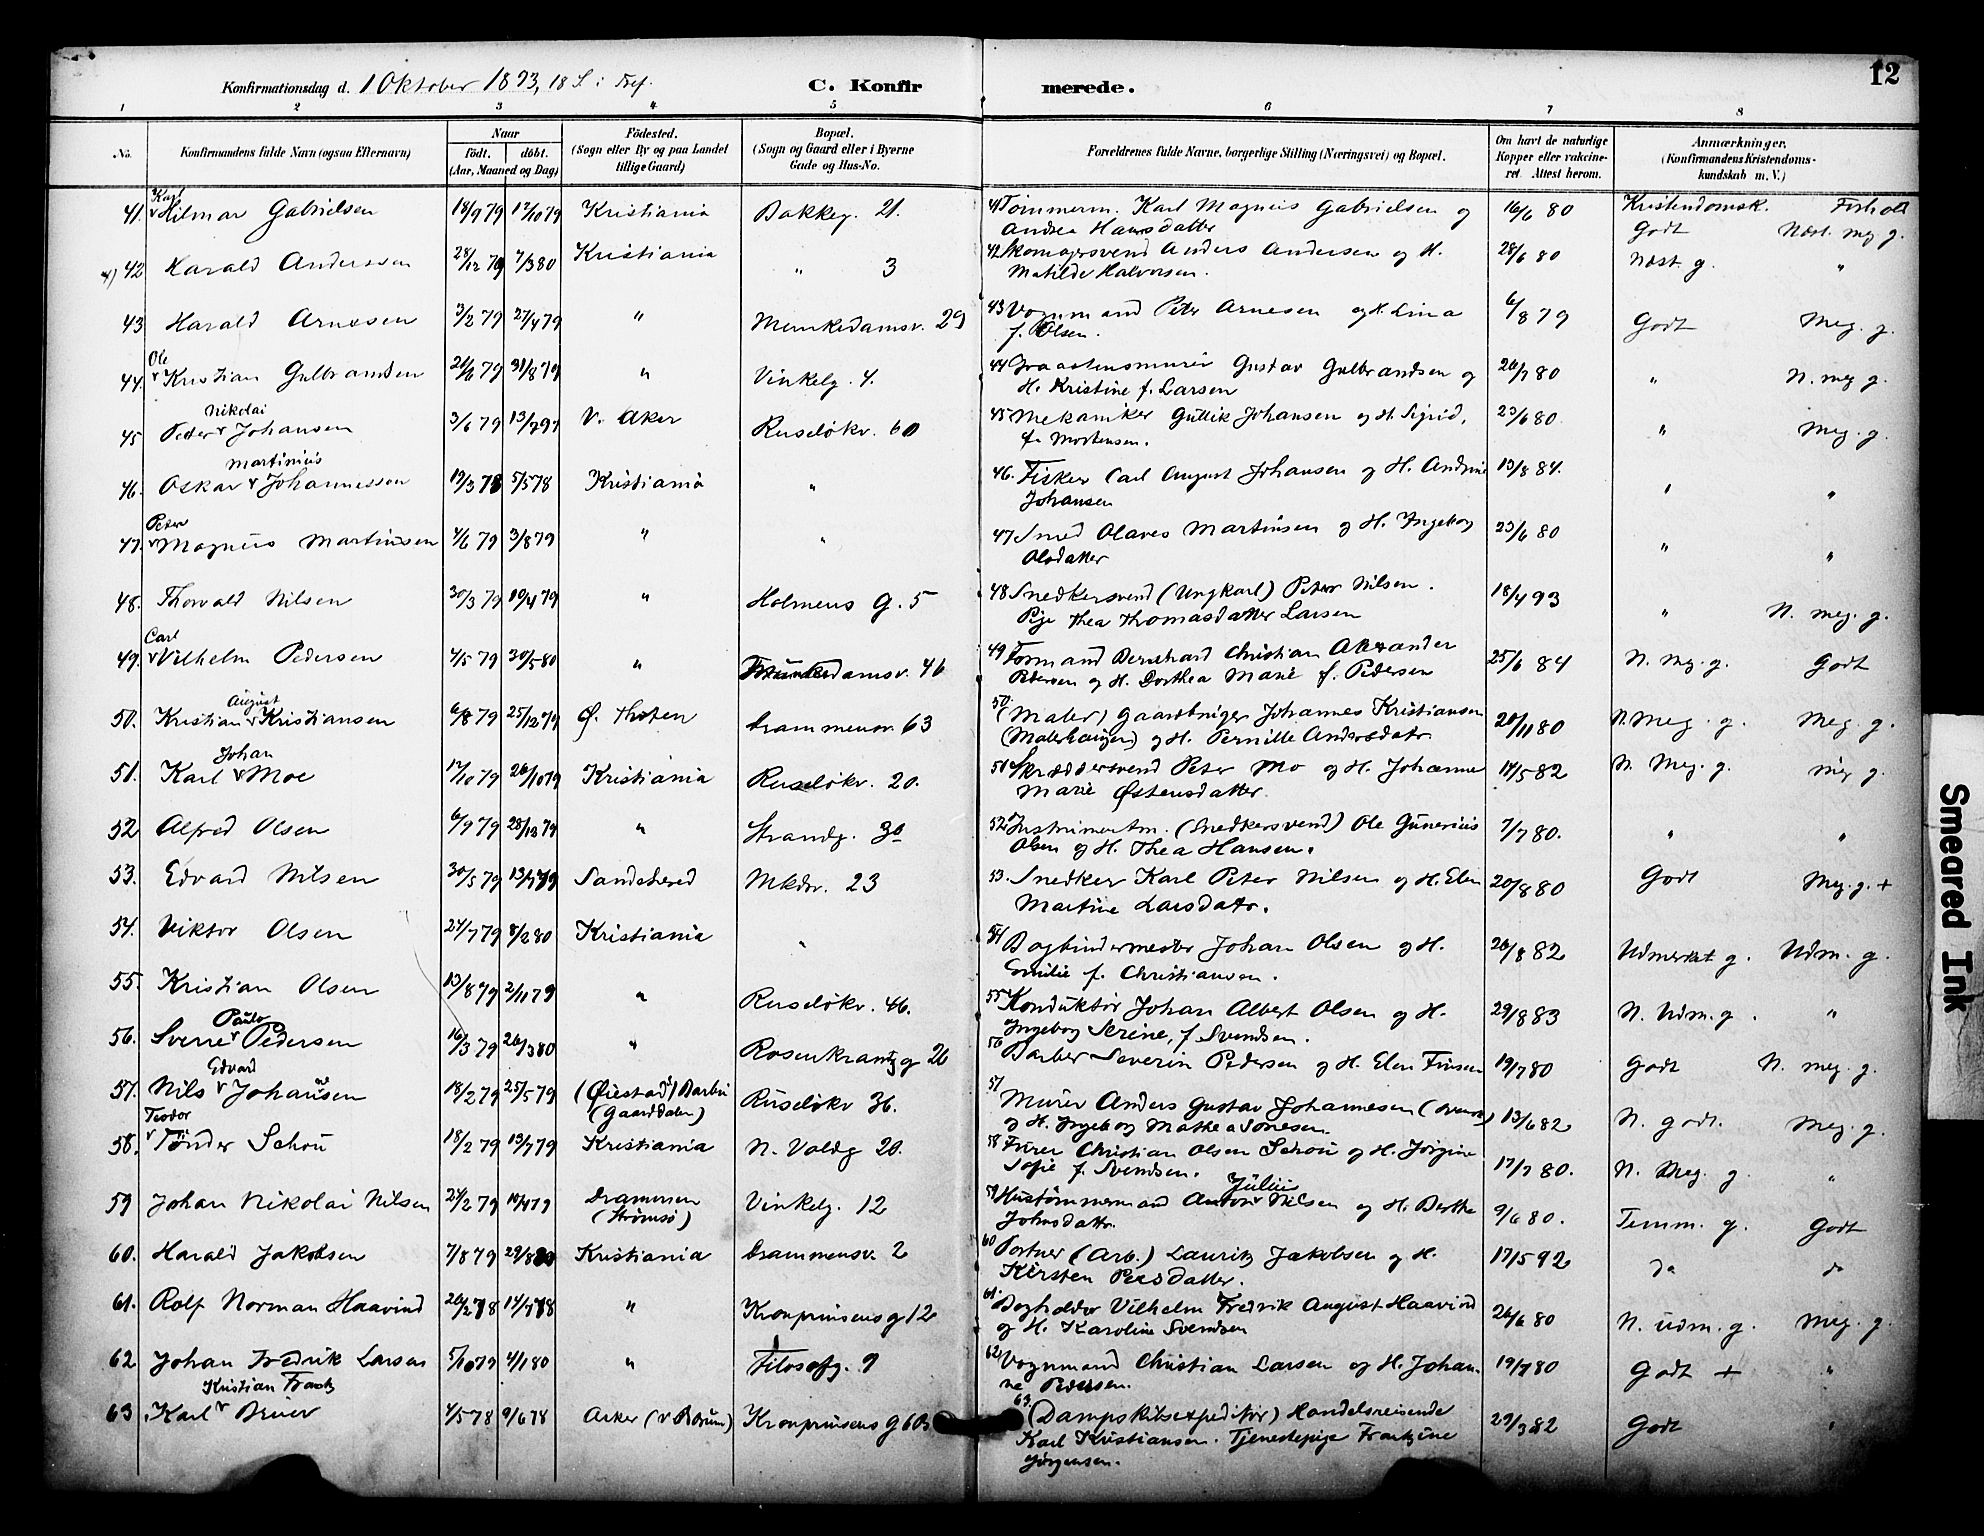 Konfirmationsdag d. 1 Oktober 1893, 18 S. i Tref. C. Konfirmerede. 12
1 2 3 4 5 6 7 8
No. Konfirmandens fulde Navn (ogsaa Efternavn) Naar födt. döbt. (Aar, Maaned og Dag) Födested. (Sogn eller By og paa Landet tillige Gaard) Bopæl. (Sogn og Gaard eller i Byerne Gade og Hus-No. Forældrenes fulde Navne, borgerlige Stilling (Næringsvei) og Bopæl. Om havt de naturlige Kopper eller vakcineret. Attest herom. Anmærkninger. (Konfirmandens Kristendomskundskab m. V.)
Kristendomsk. Forhold
41. Karl Hilmar Gabrielsen 18/9 79 12/10 79 Kristiania Bakkeg. 21. 41 Tømmerm. Karl Magnus Gabrielsen og Andrea Hansdatter 16/6 80 Godt Næst. meg. g.
42 Harald Anderssen 28/12 79 7/3 80 Kristiania " 3 42 Skomagersvend Anders Andersen og H. Matilde Halvorsen. 28/6 80 Næst. g. "
43 Harald Arnesen 3/2 79 27/4 79 " Munkedamsv. 29 43 Vognmand Peter Arnesen og H. Lina f. Olsen. 6/8 79 Godt Meg. g.
44. Ole Kristian Gulbrandsen 21/6 79 31/8 79 " Vinkelg. 4. 44 Graastensmurer Gustav Gulbrandsen og H. Kristine f. Larsen 26/7 80 " N. meg g.
45 Peder Nikolai Johansen 3/6 79 13/7 79 V. Aker Ruseløkv. 60 45 Mekaniker Guttik Johansen og H. Sigrid, f. Mortensen. 23/6 80 " Meg. g.
46. Oskar Martinius Johannessen 19/3 78 5/5 78 Kristiania " 46. Fisker Carl August Johansen og H. Andrine Johansen 13/8 84. " "
47. Peter Magnus Martinsen 4/6 79 3/8 79 " " 47 Smed Olaves Martinsen og H. Ingebog Olsdatter 23/6 80 " "
48. Thorvald Nilsen 30/3 79 19/4 79 " Holmens g. 5 48 Snedkersvend (Ungkarl) Peter Nilsen. Pige Thea Thomasdatter Larsen 18/4 93 " N. meg. g.
49. Carl Vilhelm Pedersen 4/5 79 30/5 80 " Munkedamsv. 46 49 Formand Bernhard Christian Alexander Pedersen og H. Dorthea Marie f. Pedersen 25/6 84 N. meg. g. Godt
50. Kristian August Kristiansen 6/8 79 25/12 79 Ø. Thoten Drammensv. 63 50 (Maler) Gaardbruger Johannes Kristiansen (Malerhaugen) og H. Pernille Andersdatr. 20/11 80 N. Meg. g. Meg. g.
51. Karl Johan Moe 17/10 79 26/10 79 Kristiania Ruseløkv. 20. 51 Skræddersvend Peter Mo og H. Johanne Marie Østensdatter. 14/5 82 N. Meg. g. meg g.
52 Alfred Olsen 6/9 79 28/12 79 " Strandg. 30 52 Instrumentm. (Snedkersvend) Ole Gunerius Olsen og H. Thea Hansen. 7/7 80. " "
53. Edvard Nilsen 30/5 79 13/7 79 Sandeherred Mkdv. 23 53. Snedker Karl Peter Nilsen og H. Elen Martine Larsdatr. 20/8 80 Godt Meg. g. +
54. Viktor Olsen 24/7 79 8/2 80 Kristiania " 54 Bogbindermester Johan Olsen og H. Emilie f. Christiansen. 26/8 82 Udmerket g. Udm. g.
55. Kristian Olsen 13/8 79 2/11 79 " Ruseløkv. 46. 55 Konduktør Johan Albert Olsen og H. Ingebog Serine, f. Svendsen. 29/8 83 N. Udm. g. "
56. Sverre Paulo Pedersen 16/3 79 26/3 80 " Rosenkrantzg 26 56 Barber Severin Pedersen og H. Elen Finsen 19/7 80 Godt N. meg. g.
57. Nils Edvard Johansen 18/2 79 25/5 79 (Øiestad) Barbu (Gaarddalen) Ruseløkv 36. 57 Murer Anders Gustav Johannesen (svensk) og H. Ingebog Mathea Tonesen. 13/6 82 N. godt. Meg. g.
58. Teodor Tønder Schou 18/2 79 13/7 79 Kristiania N. Voldg 20. 58 Fører Christian Olsen Schou og H. Jørgine Sofie f. Svendsen. 17/7 80. N. Meg. g. "
59 Johan Nikolai Nilsen 24/2 79 10/4 79 Drammen (Strømsø) Vinkelg. 12 59 Hustømmermand Anton Julius Nilsen og H. Berthe Johnsdattr. 9/6 80. Temm. g. Godt
60. Harald Jakobsen 7/8 79 29/8 80 Kristiania Drammensv. 2 60 Portner (Arb.) Lauritz Jakobsen og H. Kirsten Pedersdatter. 17/5 92 do do
61. Rolf Norman Haavind 26/2 78 14/7 78 " Kronprinsens g 12 61. Bogholder Vilhelm Fredrik August Haavind og H. Karoline Svendsen 26/6 80 N. udm. g. Meg. g.
62 Johan Fredrik Larsen 5/10 79 4/1 80 " Filosofg. 9 62 Vognmand Christian Larsen og H. Johanne Pedersen. 19/7 80 Godt + "
63. Karl Kristian Frantz Beuer 4/5 78 9/6 78 Asker (v Bærum) Kronprinsens g 60B 63. (Dampskibsexpeditør) Handelsreisende Karl Kristiansen. Tjenestepige Frantzine Jørgensen. 29/3 82 Godt "
Smeared Ink